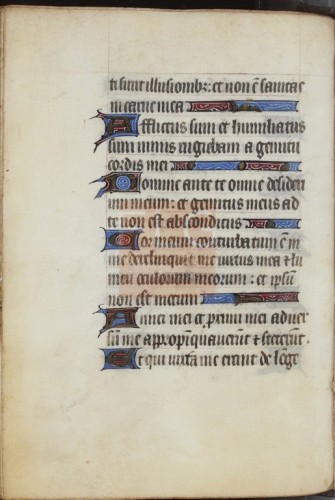 ti sunt illusionib₃: et non ē sanitas
in carne mea
Afflictus sum et humiliatus
sum nimis rugiebam a gemitu
cordis mei
Domine ante te omne desideri
um meum: et gemitus meus ad
te non est absconditus
Cor meum conturbatum ē in
me dereliquit me virtus mea ⁊ lu
men oculorum meorum: et ipsū
non est mecum
Amici mei et proximi mei adver
sū me appropinquaverūt ⁊ steterūt.
Et qui iuxta me erant de longe